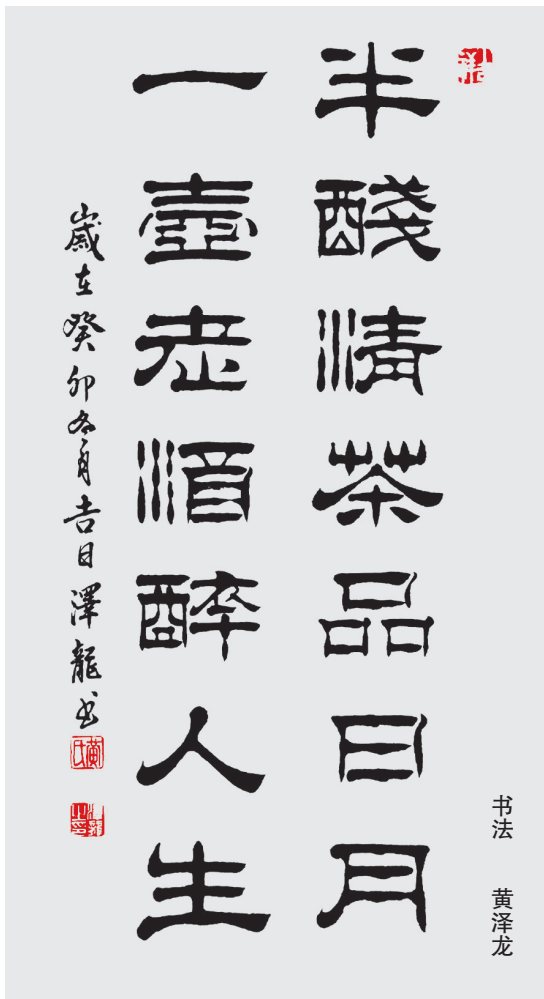 半醆清茶品日月
一壺老酒醉人生
歲在癸卯冬月吉日澤龍书
黄氏
书法 黄泽龙